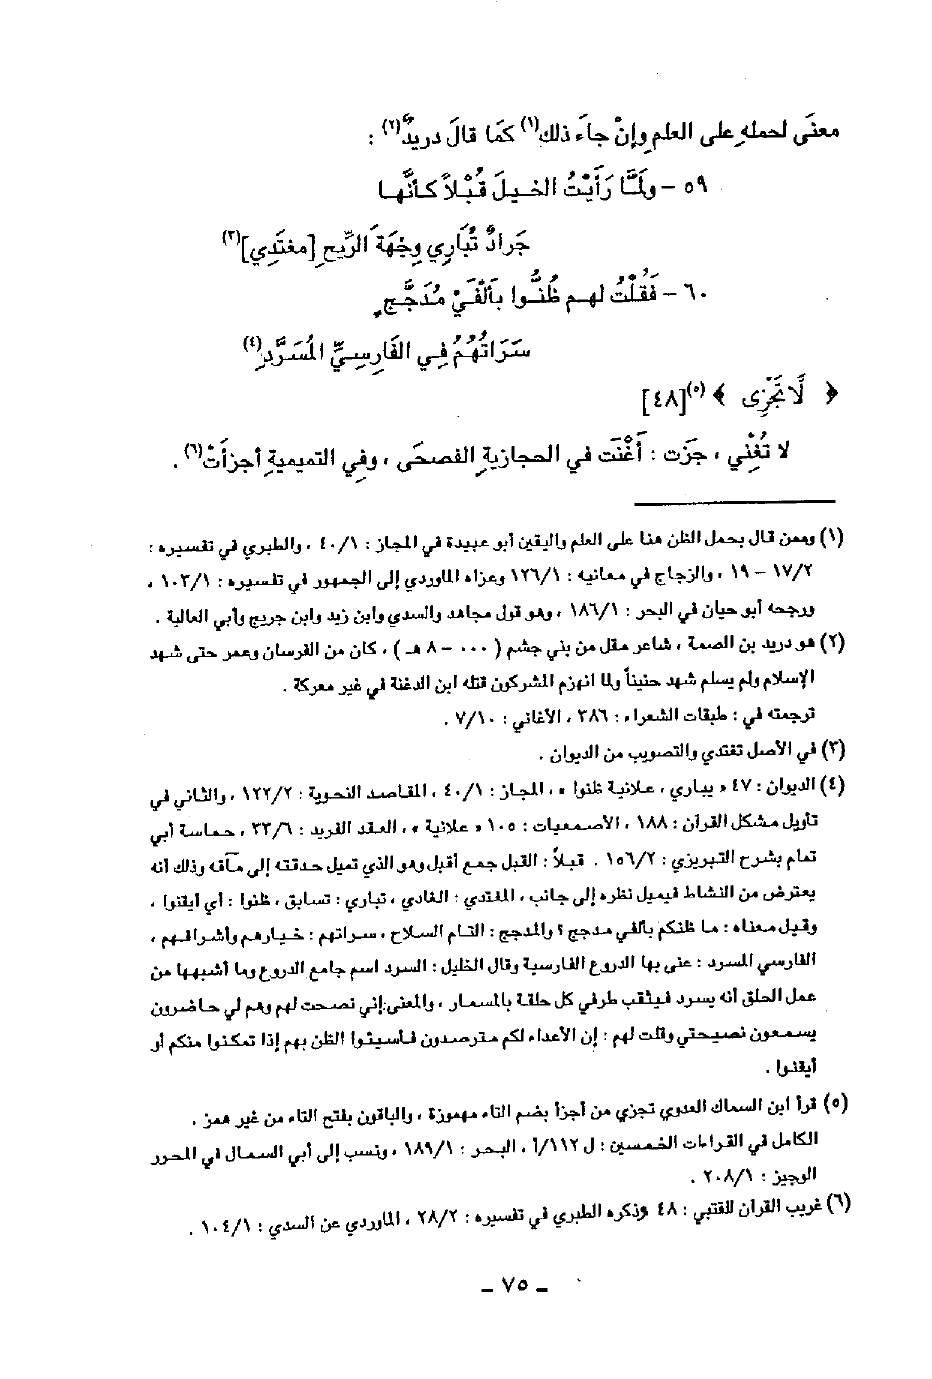 معنَى لحملهِ على العلمِ وإنْ جاءَ ذلك(١) كمَا قالَ دريدٌ(٢) :
٥٩ – ولَمَّا رَأَيْتُ الخيلَ قُبْلاً كأنَّها
جَرادٌ تُبَارِي وِجْهَةَ الرِّيحِ [مغتَدِي](٣)
٦٠ – فَقُلْتُ لهم ظُنُّوا بأَلْفَيْ مُدَجَّجٍ
سَرَاتُهُمُ فِي الفَارِسِيِّ المُسَرَّدِ(٤)
﴿ لَّا تَجْزِى ﴾(٥)[٤٨]
لا تُغْنِي ، جَزَت : أَغْنَت في الحجازيةِ الفصحَى ، وفِي التميميةِ أجزأتْ(٦) .
(١) وممن قال بحمل الظن هنا على العلم واليقين أبو عبيدة في المجاز : ٤٠/١ ، والطبري في تفسيره :
١٧/٢ – ١٩ ، والزجاج في معانيه : ١٢٦/١ وعزاه الماوردي إلى الجمهور في تفسيره : ١٠٣/١ ،
ورجحه أبو حيان في البحر : ١٨٦/١ ، وهو قول مجاهد والسدي وابن زيد وابن جريج وأبي العالية .
(٢) هو دريد بن الصمة ، شاعر مقل من بني جشم ( ٠٠٠ – ٨ هـ ) ، كان من الفرسان وعمر حتى شهد
الإسلام ولم يسلم شهد حنيناً ولما انهزم المشركون قتله ابن الدغنة في غير معركة .
ترجمته في : طبقات الشعراء : ٣٨٦ ، الأغاني : ٧/١٠ .
(٣) في الأصل تغتدي والتصويب من الديوان .
(٤) الديوان : ٤٧ « يباري ، علانية ظنوا » ، المجاز : ٤٠/١ ، المقاصد النحوية : ١٢٢/٢ ، والثاني في
تأويل مشكل القرآن : ١٨٨ ، الأصمعيات : ١٠٥ « علانية » ، العقد الفريد : ٣٣/٦ ، حماسة أبي
تمام بشرح التبريزي : ١٥٦/٢ . قبلاً : القبل جمع أقبل وهو الذي تميل حدقته إلى مآقه وذلك أنه
يعترض من النشاط فيميل نظره إلى جانب ، المغتدي : الغادي ، تباري : تسابق ، ظنوا : أي أيقنوا ،
وقيل معناه : ما ظنكم بألفي مدجج ؟ والمدجج : التام السلاح ، سراتهم : خيارهم وأشرافهم ،
الفارسي المسرد : عنى بها الدروع الفارسية وقال الخليل : السرد اسم جامع الدروع وما أشبهها من
عمل الحلق أنه يسرد فيثقب طرفي كل حلقة بالمسمار ، والمعنى:إني نصحت لهم وهم لي حاضرون
يسمعون نصيحتي وقلت لهم : إن الأعداء لكم مترصدون فأسيئوا الظن بهم إذا تمكنوا منكم أو
أيقنوا .
(٥) قرأ ابن السماك العدوي تجزي من أجزأ بضم التاء مهموزة ، والباقون بفتح التاء من غير همز .
الكامل في القراءات الخمسين : ل ١١٢/أ ، البحر : ١٨٩/١ ، ونسب إلى أبي السمال في المحرر
الوجيز : ٢٠٨/١ .
(٦) غريب القرآن للقتبي : ٤٨ وذكره الطبري في تفسيره : ٢٨/٢ ، الماوردي عن السدي : ١٠٤/١ .
– ٧٥ –